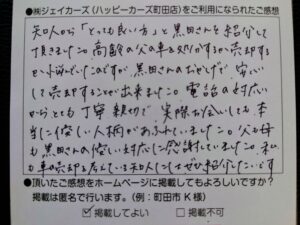 ●㈱ジェイカーズ(ハッピーカーズ町田店)をご利用になられたご感想
知人から「とっても良い方」と黒田さんを紹介して
頂きました。高齢の父の車を処分するか売却する
か悩んでいたのですが黒田さんのおかげで安心
して売却することが出来ました。電話の対応
からとても丁寧親切で実際お会いしても本
当に優しい人柄があふれていました。父も母
も黒田さんの優しい対応に感謝していました。私
も車の売却を考えている知人にぜひ紹介したいです
●頂いたご感想をホームページに掲載してもよろしいですか?
掲載は匿名で行います。(例:町田市 K 様)
☑ 掲載してよい □ 掲載不可